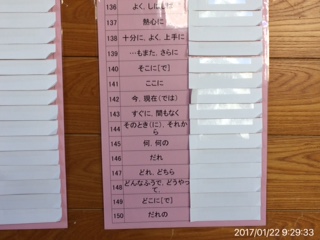 136 よく、しばしば
137 熱心に
138 十分に、よく、上手に
139 …もまた、さらに
140 そこに[で]
141 ここに
142 今、現在(では)
143 すぐに、間もなく
144 そのとき(に)、それか
ら
145 何、何の
146 だれ
147 どれ、どちら
148 どんなふうで、どうやっ
て、
149 どこに[で]
150 だれの
2017/01/22 9:29:33